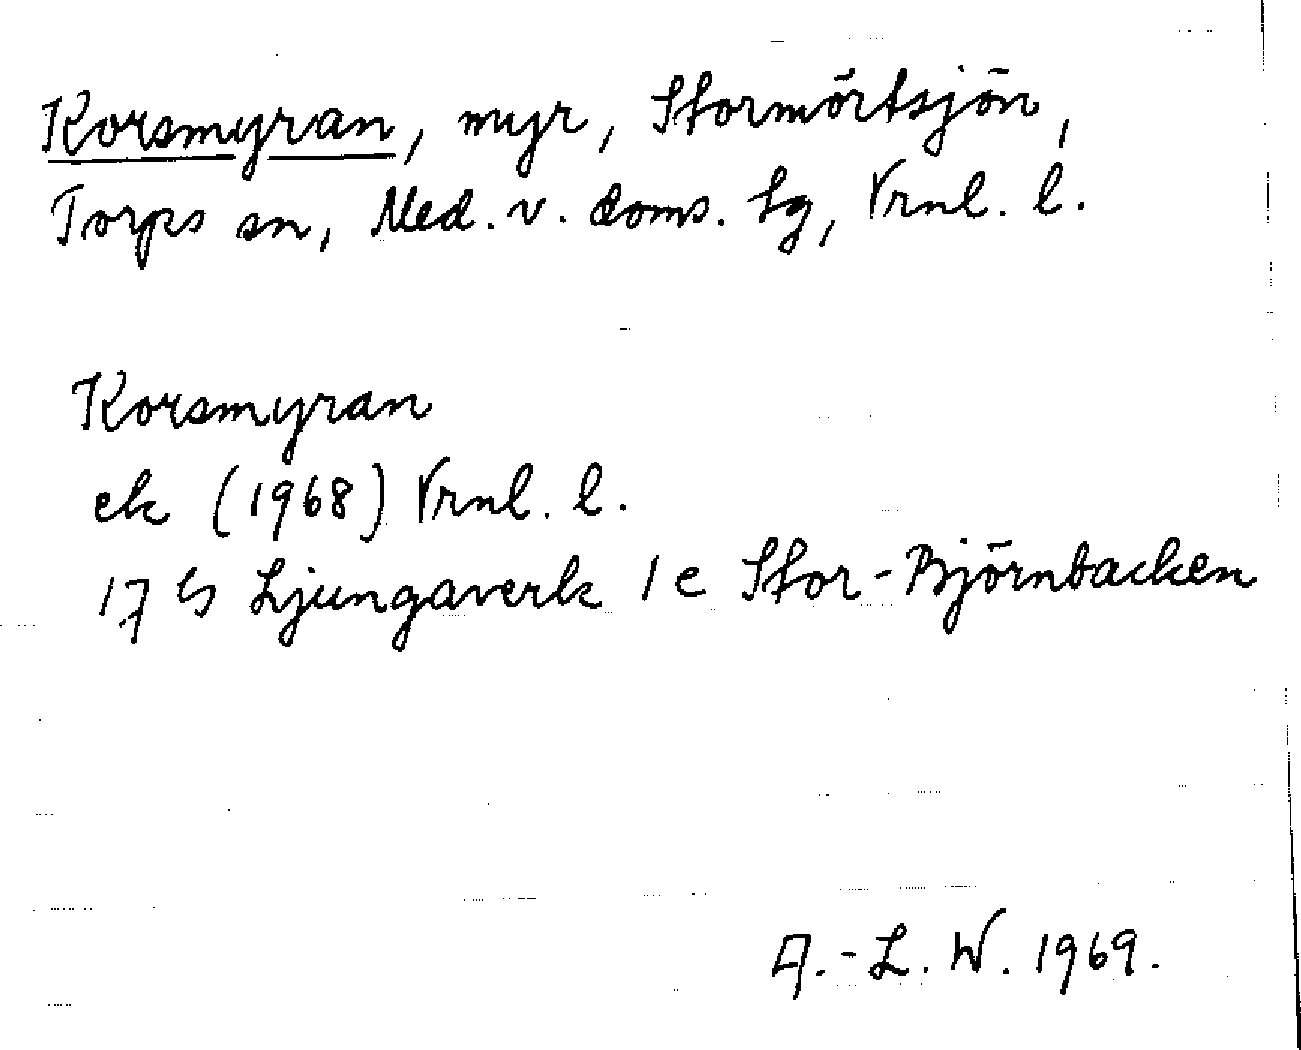 Korsmyran, myr, Stormörtsjön,
Torps sn, Med. v. doms. lg, Vrnl. l.
Korsmyran
ek (1968) Vrnl. l.
17 G Ljungaverk 1 e Stor-Björnbacken
A.-L. W. 1969.